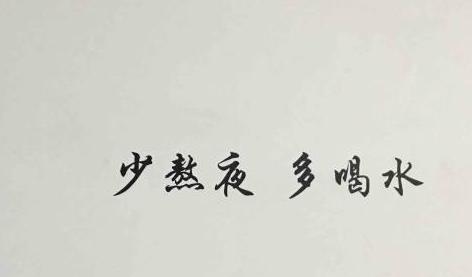 少熬夜 多喝水